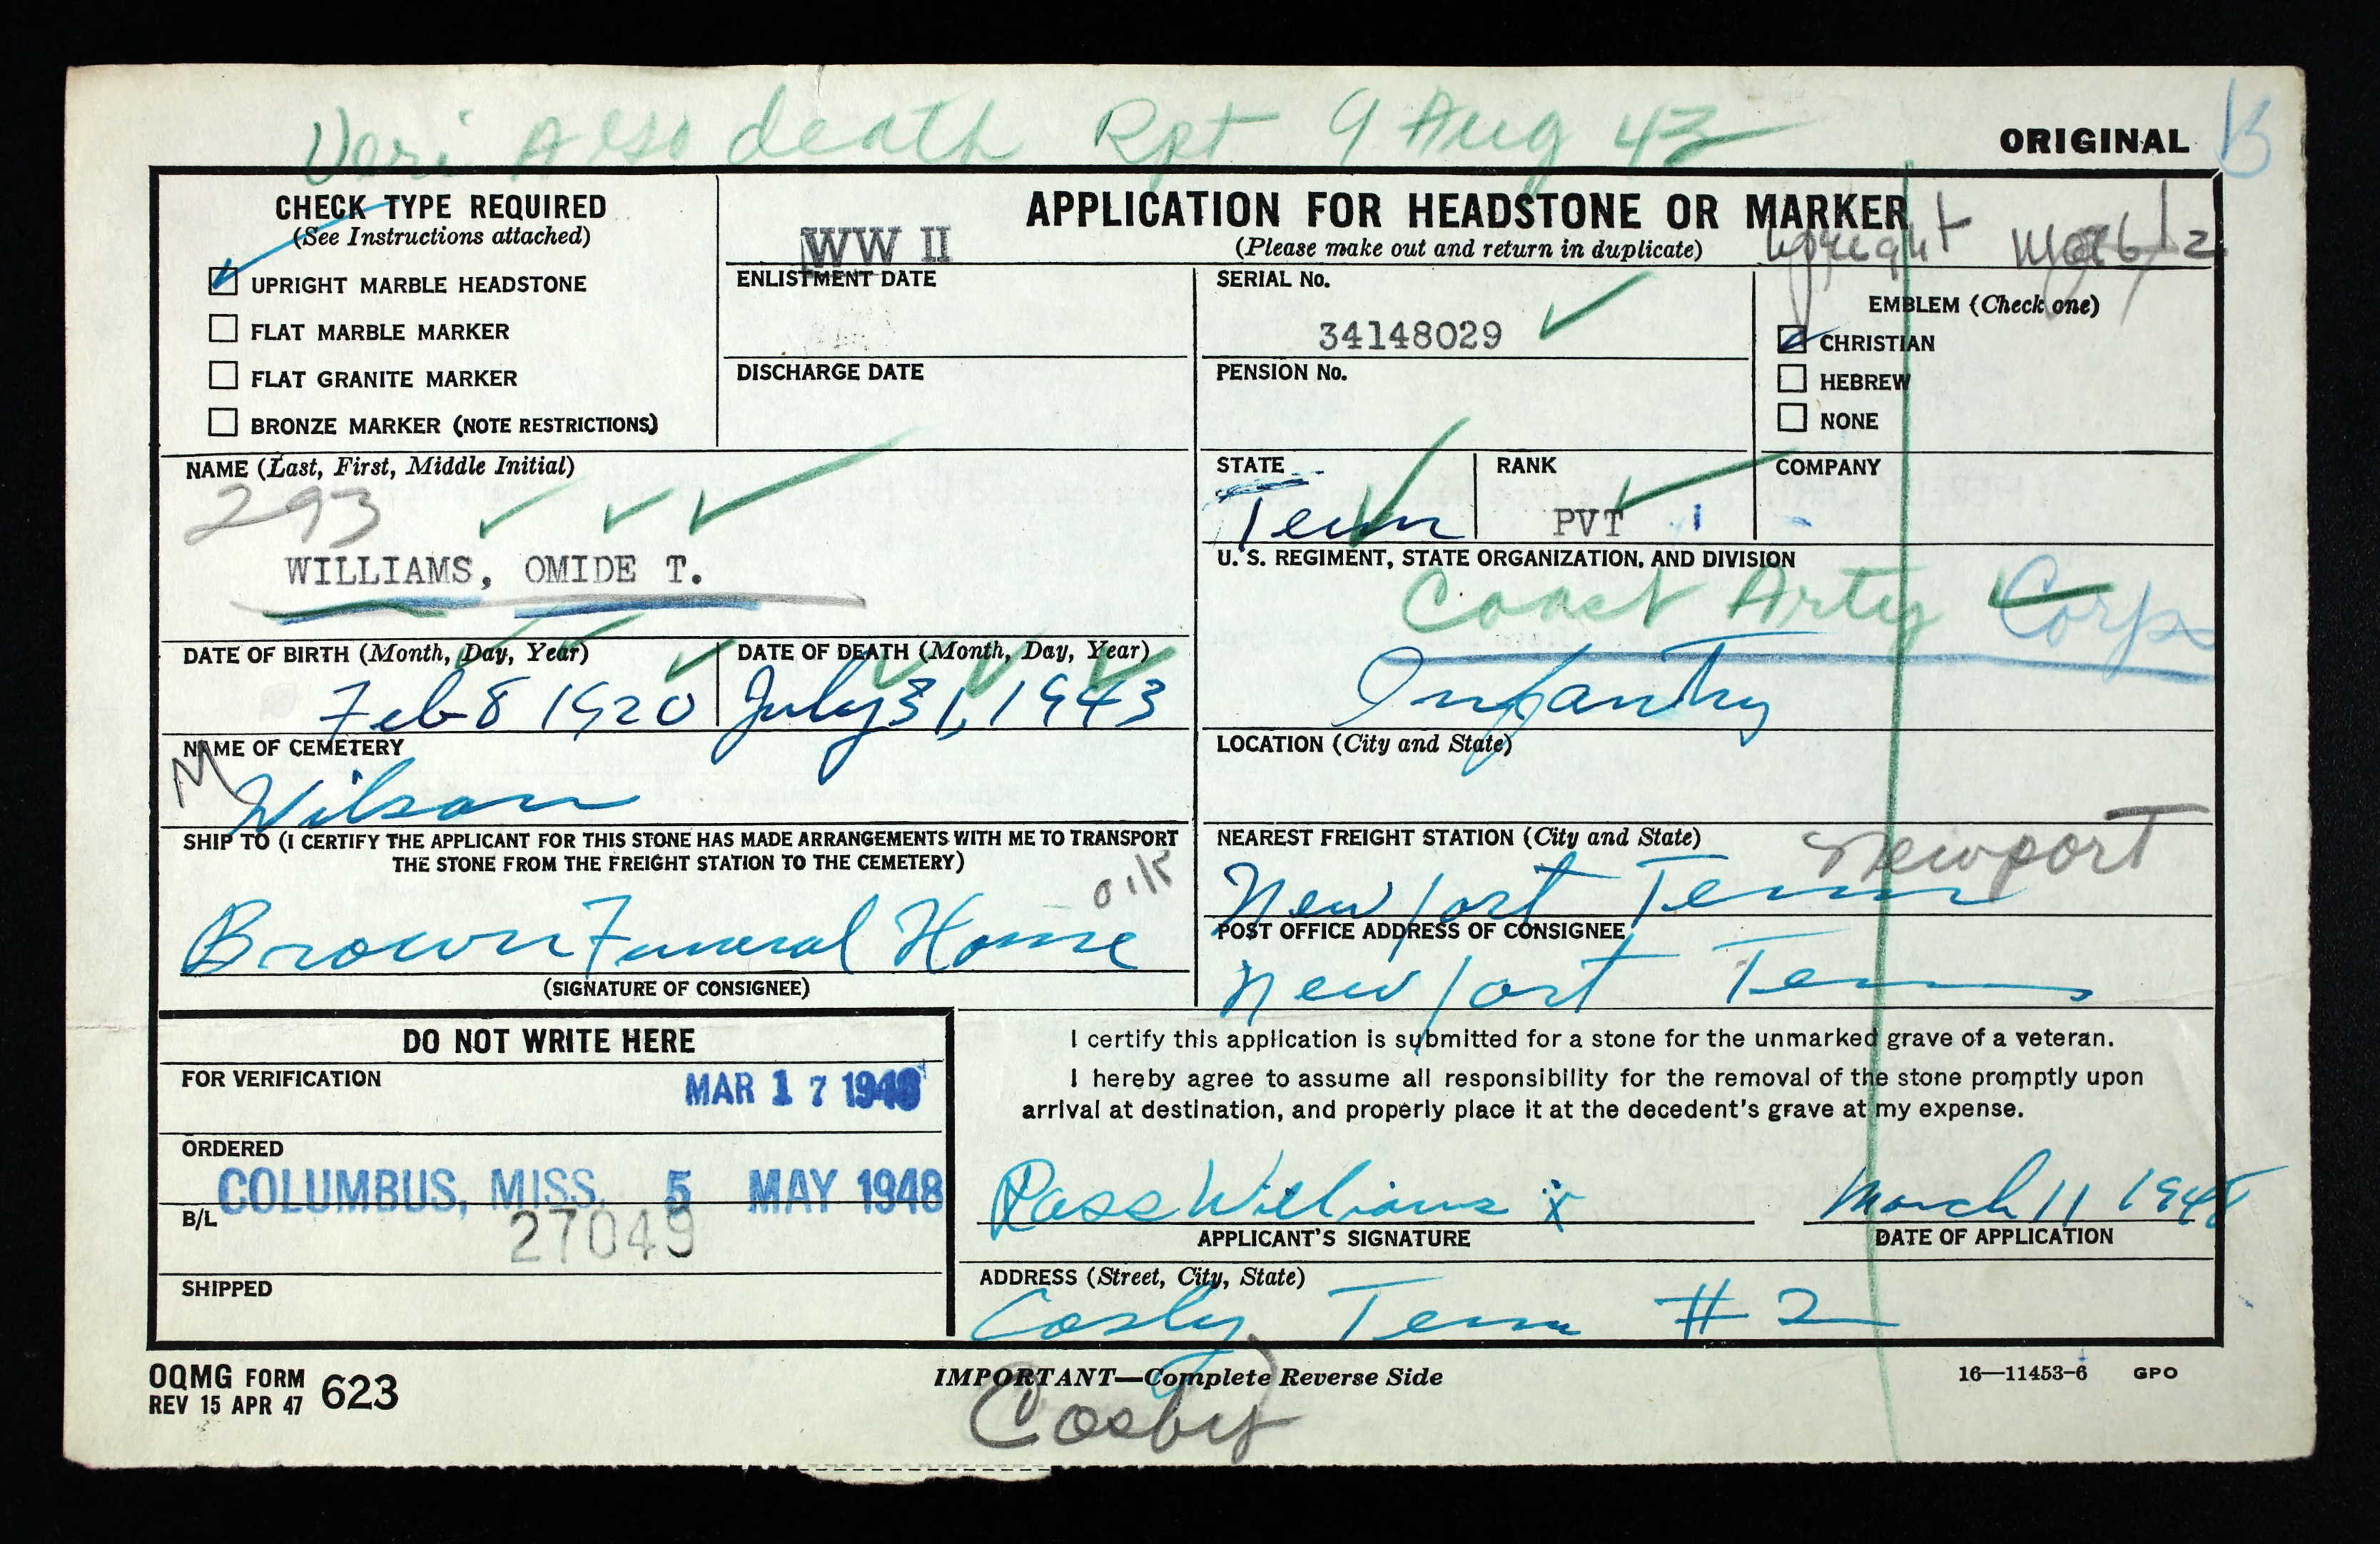 Veri AGO death Rpt 9 Aug 43
ORIGINAL B
CHECK TYPE REQUIRED
(See Instructions attached)
UPRIGHT MARBLE HEADSTONE
FLAT MARBLE MARKER
FLAT GRANITE MARKER
BRONZE MARKER (NOTE RESTRICTIONS)
APPLICATION FOR HEADSTONE OR MARKER
(Please make out and return in duplicate)
Upright
WW II
ENLISTMENT DATE
DISCHARGE DATE
SERIAL No.
34148029
PENSION No.
EMBLEM (Check one)
CHRISTIAN
HEBREW
NONE
NAME (Last, First, Middle Initial)
293
WILLIAMS, OMIDE T.
STATE
Tenn
RANK
PVT
COMPANY
U. S. REGIMENT, STATE ORGANIZATION, AND DIVISION
Coast Arty Corps
Infantry
DATE OF BIRTH (Month, Day, Year)
Feb 8 1920
DATE OF DEATH (Month, Day, Year)
July 31, 1943
NAME OF CEMETERY
M
Wilson
LOCATION (City and State)
SHIP TO (I CERTIFY THE APPLICANT FOR THIS STONE HAS MADE ARRANGEMENTS WITH ME TO TRANSPORT
THE STONE FROM THE FREIGHT STATION TO THE CEMETERY)
o.k
Brown Funeral Home
(SIGNATURE OF CONSIGNEE)
NEAREST FREIGHT STATION (City and State)
Newport
Newport Tenn
POST OFFICE ADDRESS OF CONSIGNEE
Newport Tenn
DO NOT WRITE HERE
FOR VERIFICATION
MAR 17 1948
ORDERED
COLUMBUS, MISS. 5 MAY 1948
B/L
27049
SHIPPED
I certify this application is submitted for a stone for the unmarked grave of a veteran.
I hereby agree to assume all responsibility for the removal of the stone promptly upon
arrival at destination, and properly place it at the decedent's grave at my expense.
Ross Williams x
APPLICANT'S SIGNATURE
March 11 1948
DATE OF APPLICATION
ADDRESS (Street, City, State)
Cosby Tenn # 2
OQMG FORM 623
REV 15 APR 47
IMPORTANT—Complete Reverse Side
16—11453-6 GPO
Cosby